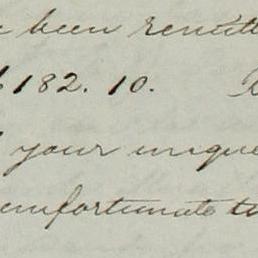 been remitt
182. 10.
your unique
unfortunate